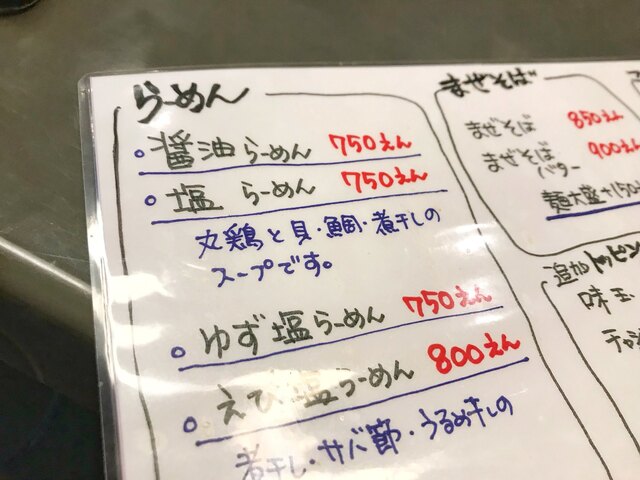 らーめん
醤油らーめん 750えん
塩 らーめん 750えん
丸鶏と貝・鯛・煮干しの
スープです。
ゆず塩らーめん 750えん
えび塩らーめん 800えん
煮干し・サバ節・うるめ干しの
まぜそば
まぜそば 850えん
まぜそば
バター 900えん
麺大盛+150
追加トッピン
味玉
チャシ